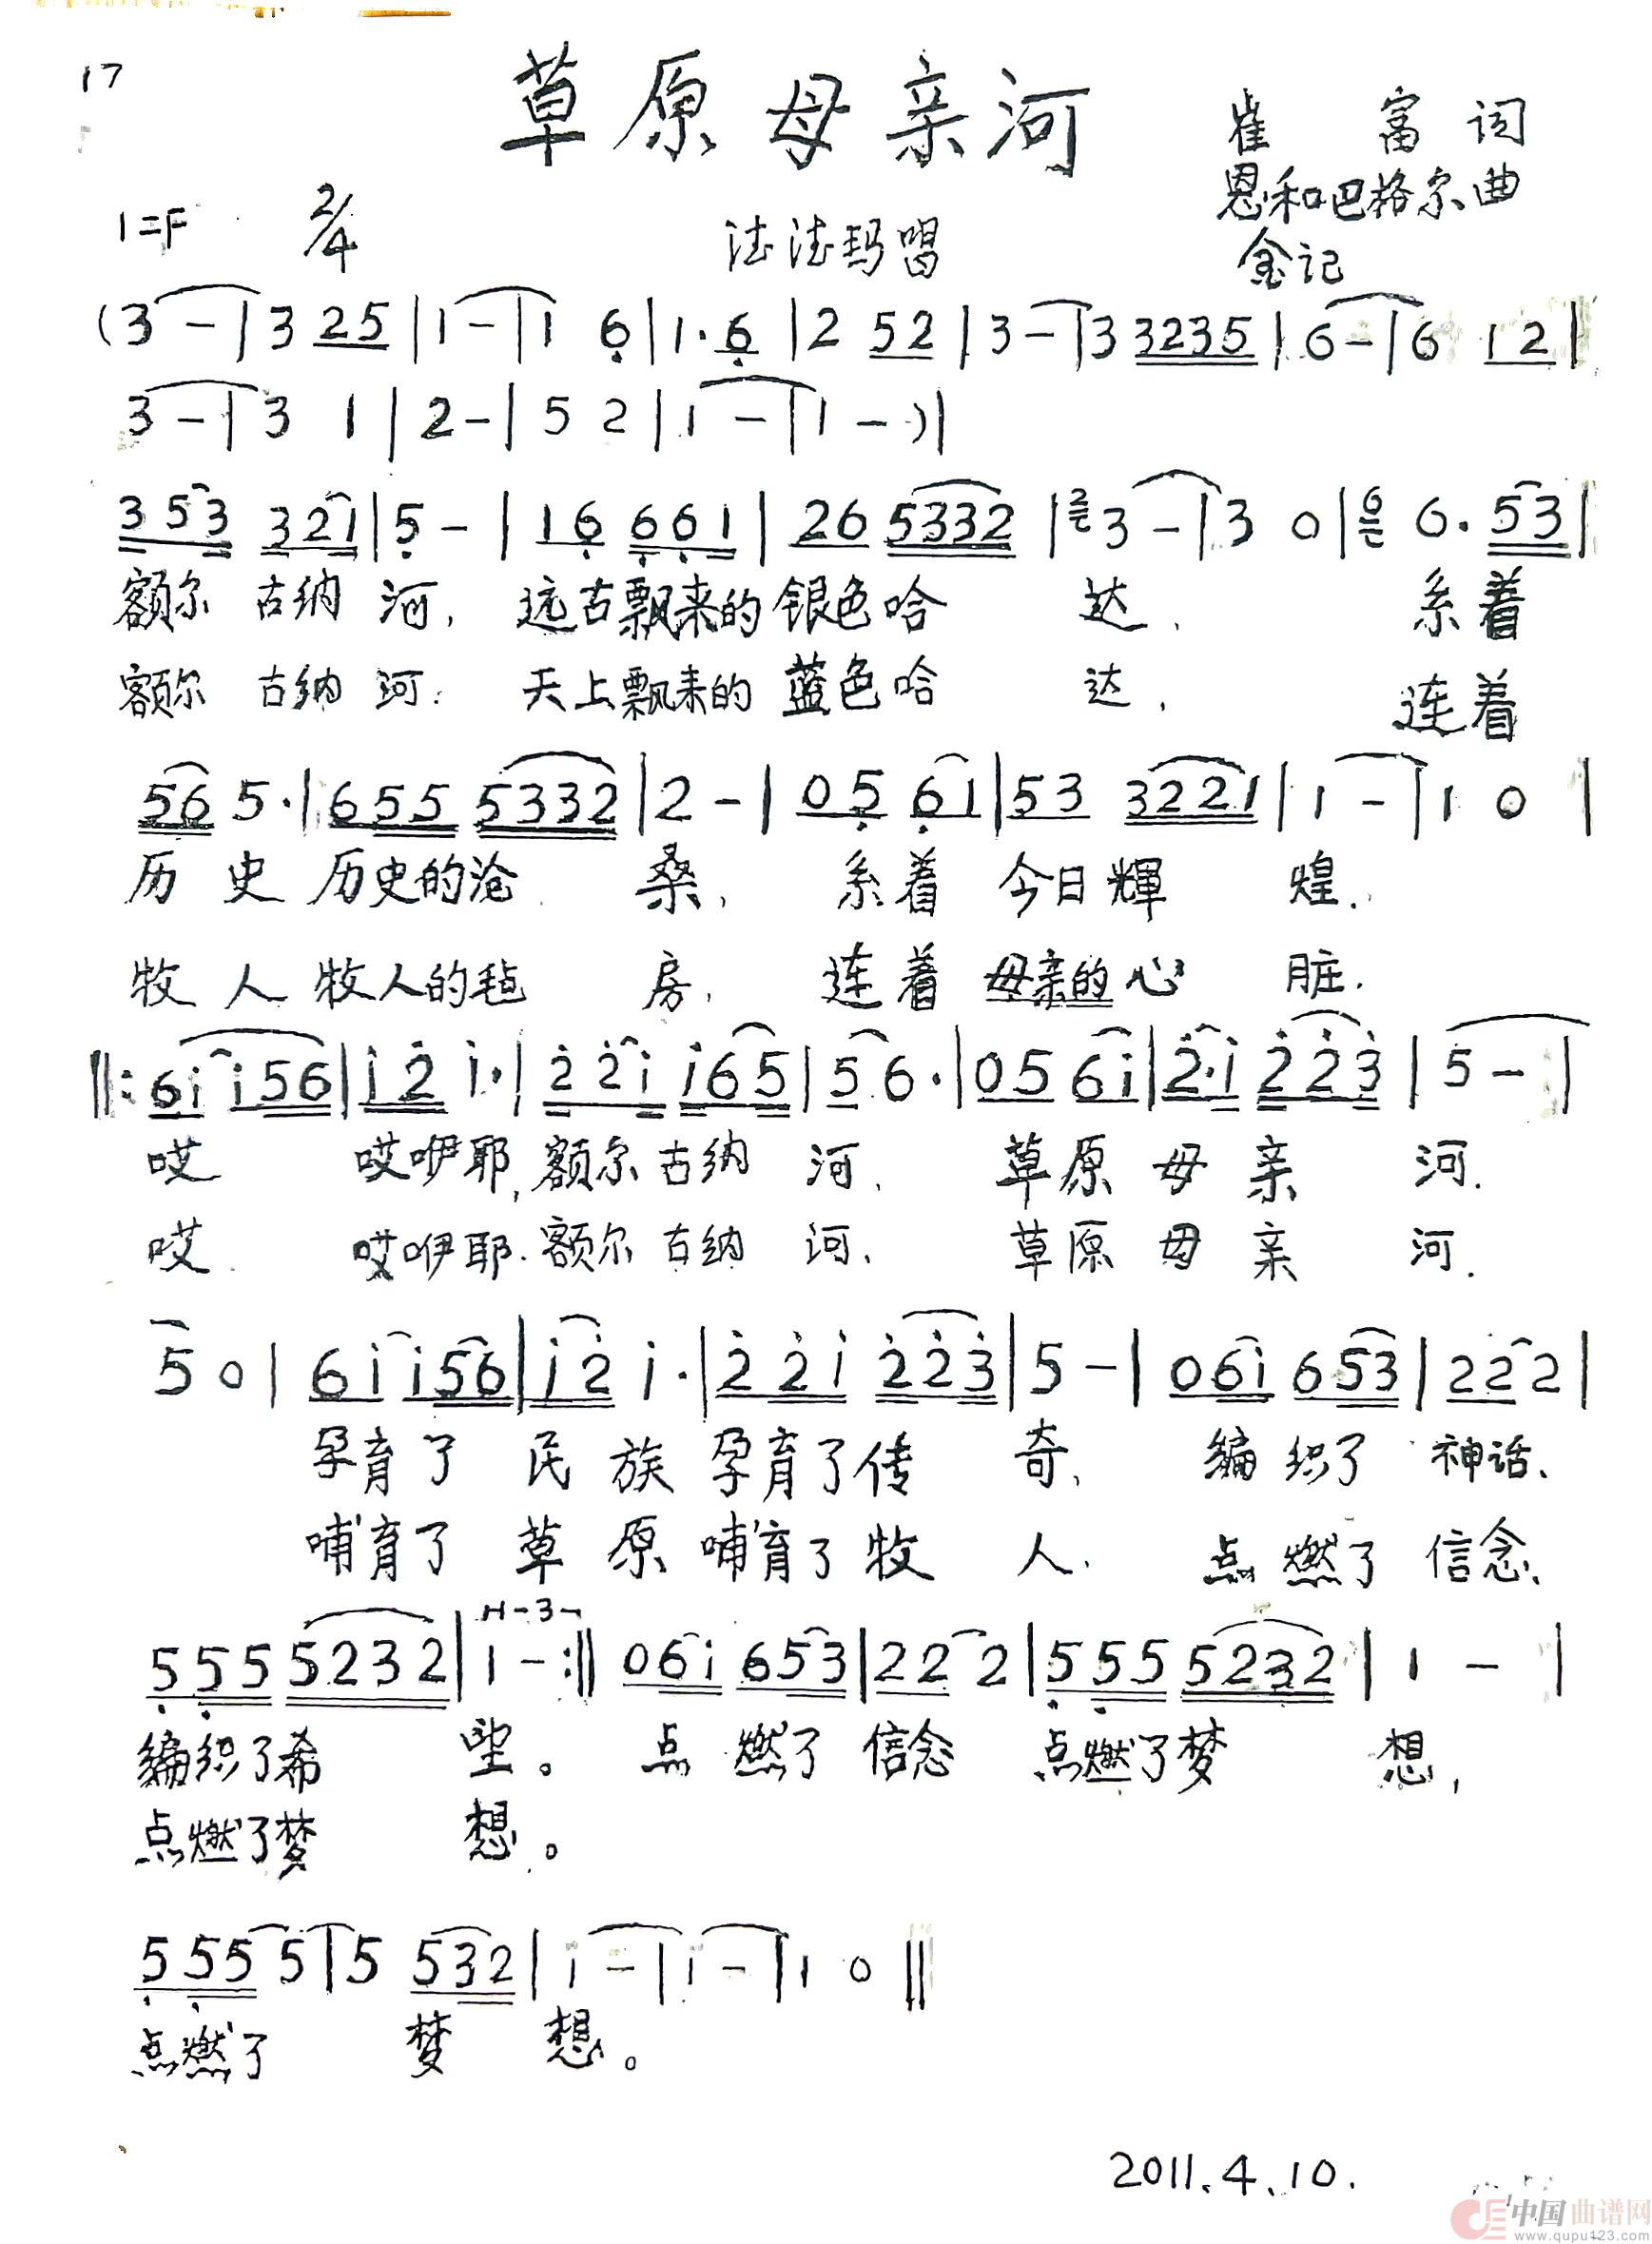 17
草原母亲河
崔富词
恩和吧格尔曲
1=F 2/4 法法玛唱 金记
(3 - | 3 25 | 1 - | 1 6 | 1. 6 | 2 52 | 3 - | 3 3235 | 6 - | 6 12 |
3 - | 3 1 | 2 - | 5 2 | 1 - | 1 - ) |
353 321 | 5 - | 16 661 | 26 5332 | 2 3 - | 3 0 | 6 6. 53 |
额尔古纳河,远古飘来的银色哈达,系着
额尔古纳河.天上飘来的蓝色哈达,连着
56 5. | 655 5332 | 2 - | 05 61 | 53 3221 | 1 - | 1 0 |
历史历史的沧桑,系着今日輝煌.
牧人牧人的毡房,连着母亲的心脏.
||: 6i i56 | i2 i. | 22i i65 | 56. | 05 6i | 2.i 223 | 5 - |
哎 哎咿耶,额尔古纳河.草原母亲河.
哎 哎咿耶.额尔古纳河.草原母亲河.
5 0 | 6i i56 | i2 i. | 22i 223 | 5 - | 06i 653 | 22 2 |
孕育了民族孕育了传奇,编织了神话、
哺育了草原哺育了牧人.点燃了信念、
555 5232 | 1 - :|| 06i 653 | 22 2 | 555 5232 | 1 - |
编织了希望。点燃了信念点燃了梦想,
点燃了梦想。
555 5 | 5 532 | i - | i - | 1 0 ||
点燃了梦想。
2011.4.10.
中国曲谱网
www.qupu123.com